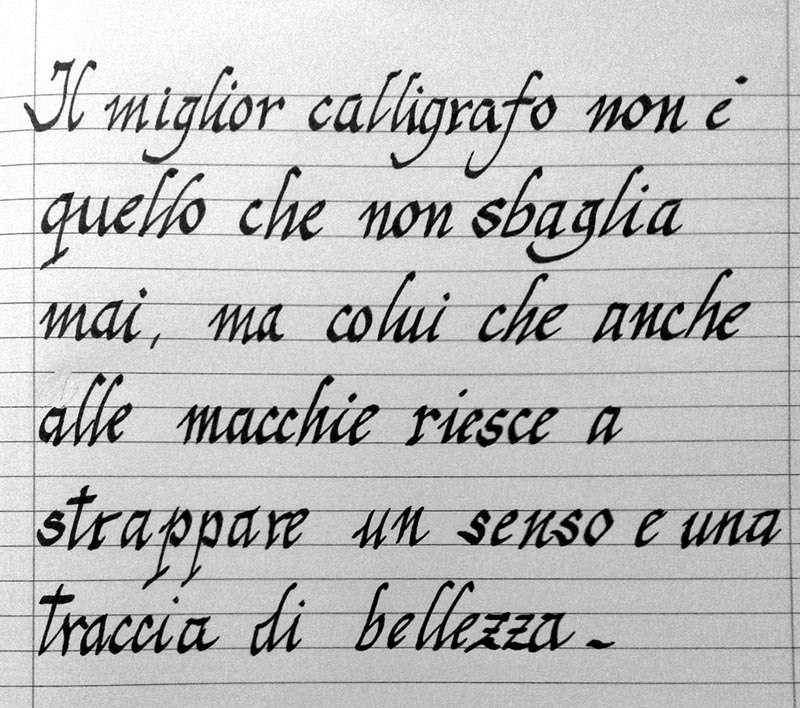 Il miglior calligrafo non è
quello che non sbaglia
mai, ma colui che anche
alle macchie riesce a
strappare un senso e una
traccia di bellezza -